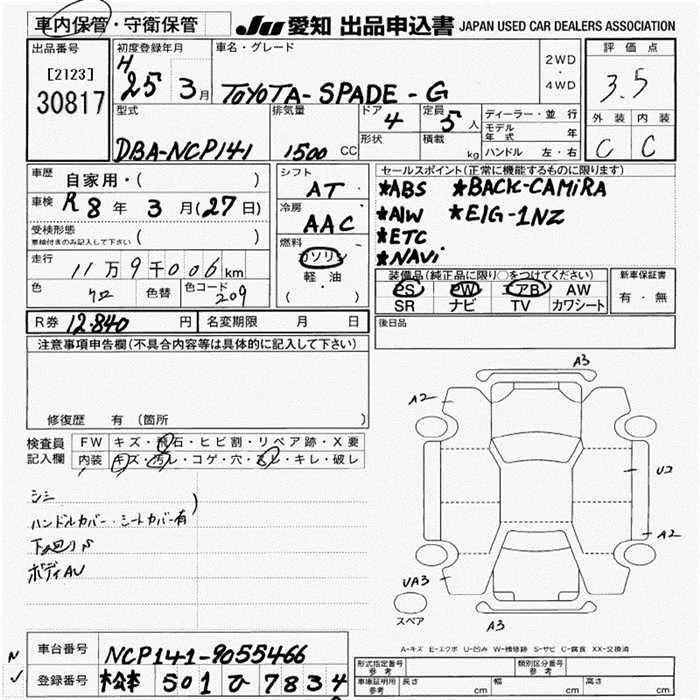 車内保管・守衛保管
JU 愛知 出品申込書 JAPAN USED CAR DEALERS ASSOCIATION
出品番号
[2123]
30817
初度登録年月
H
25 3月
車名・グレード
TOYOTA- SPADE - G
2WD
・
4WD
評価点
3.5
外装 内装
C C
型式
DBA-NCP141
排気量
1500 CC
ドア
4
定員
5人
形状
積載
kg
ディーラー・並行
モデル年式 年
ハンドル 左・右
車歴
自家用・( )
車検 R8年 3月(27日)
受検形態
車検付きのみ記入して下さい ( )
走行
11万9千006km
色
色替
色コード
209
シフト
AT
冷房
AAC
燃料
ガソリン
軽・油
( )
セールスポイント(正常に機能するものに限ります)
*ABS *BACK-CAMiRA
*A/W *E/G-1NZ
*ETC
*NAVi
装備品(純正品に限り○をつけてください)
PS PW エアB AW
SR ナビ TV カワシート
新車保証書
有・無
R券 12.840 円
名変期限 月 日
後日品
注意事項申告欄(不具合内容等は具体的に記入して下さい)
修復歴 有 (箇所 )
検査員
記入欄
FW キズ・飛石・ヒビ割・リペア跡・X要
内装 キズ・汚レ・コゲ・穴・スレ・キレ・破レ
シミ
ハンドルカバー・シートカバー有
下廻りS
ボディAU
A3
A2
U2
A2
UA3
A3
スペア
A-キズ E-エクボ U-凹み W-補修跡 S-サビ C-腐食 XX-交換済
車台番号
NCP141-9055466
登録番号
松本 501 ひ 7834
形式指定番号
参考
類別区分番号
参考
車庫証明用
参考
長さ cm
幅 cm
高さ cm